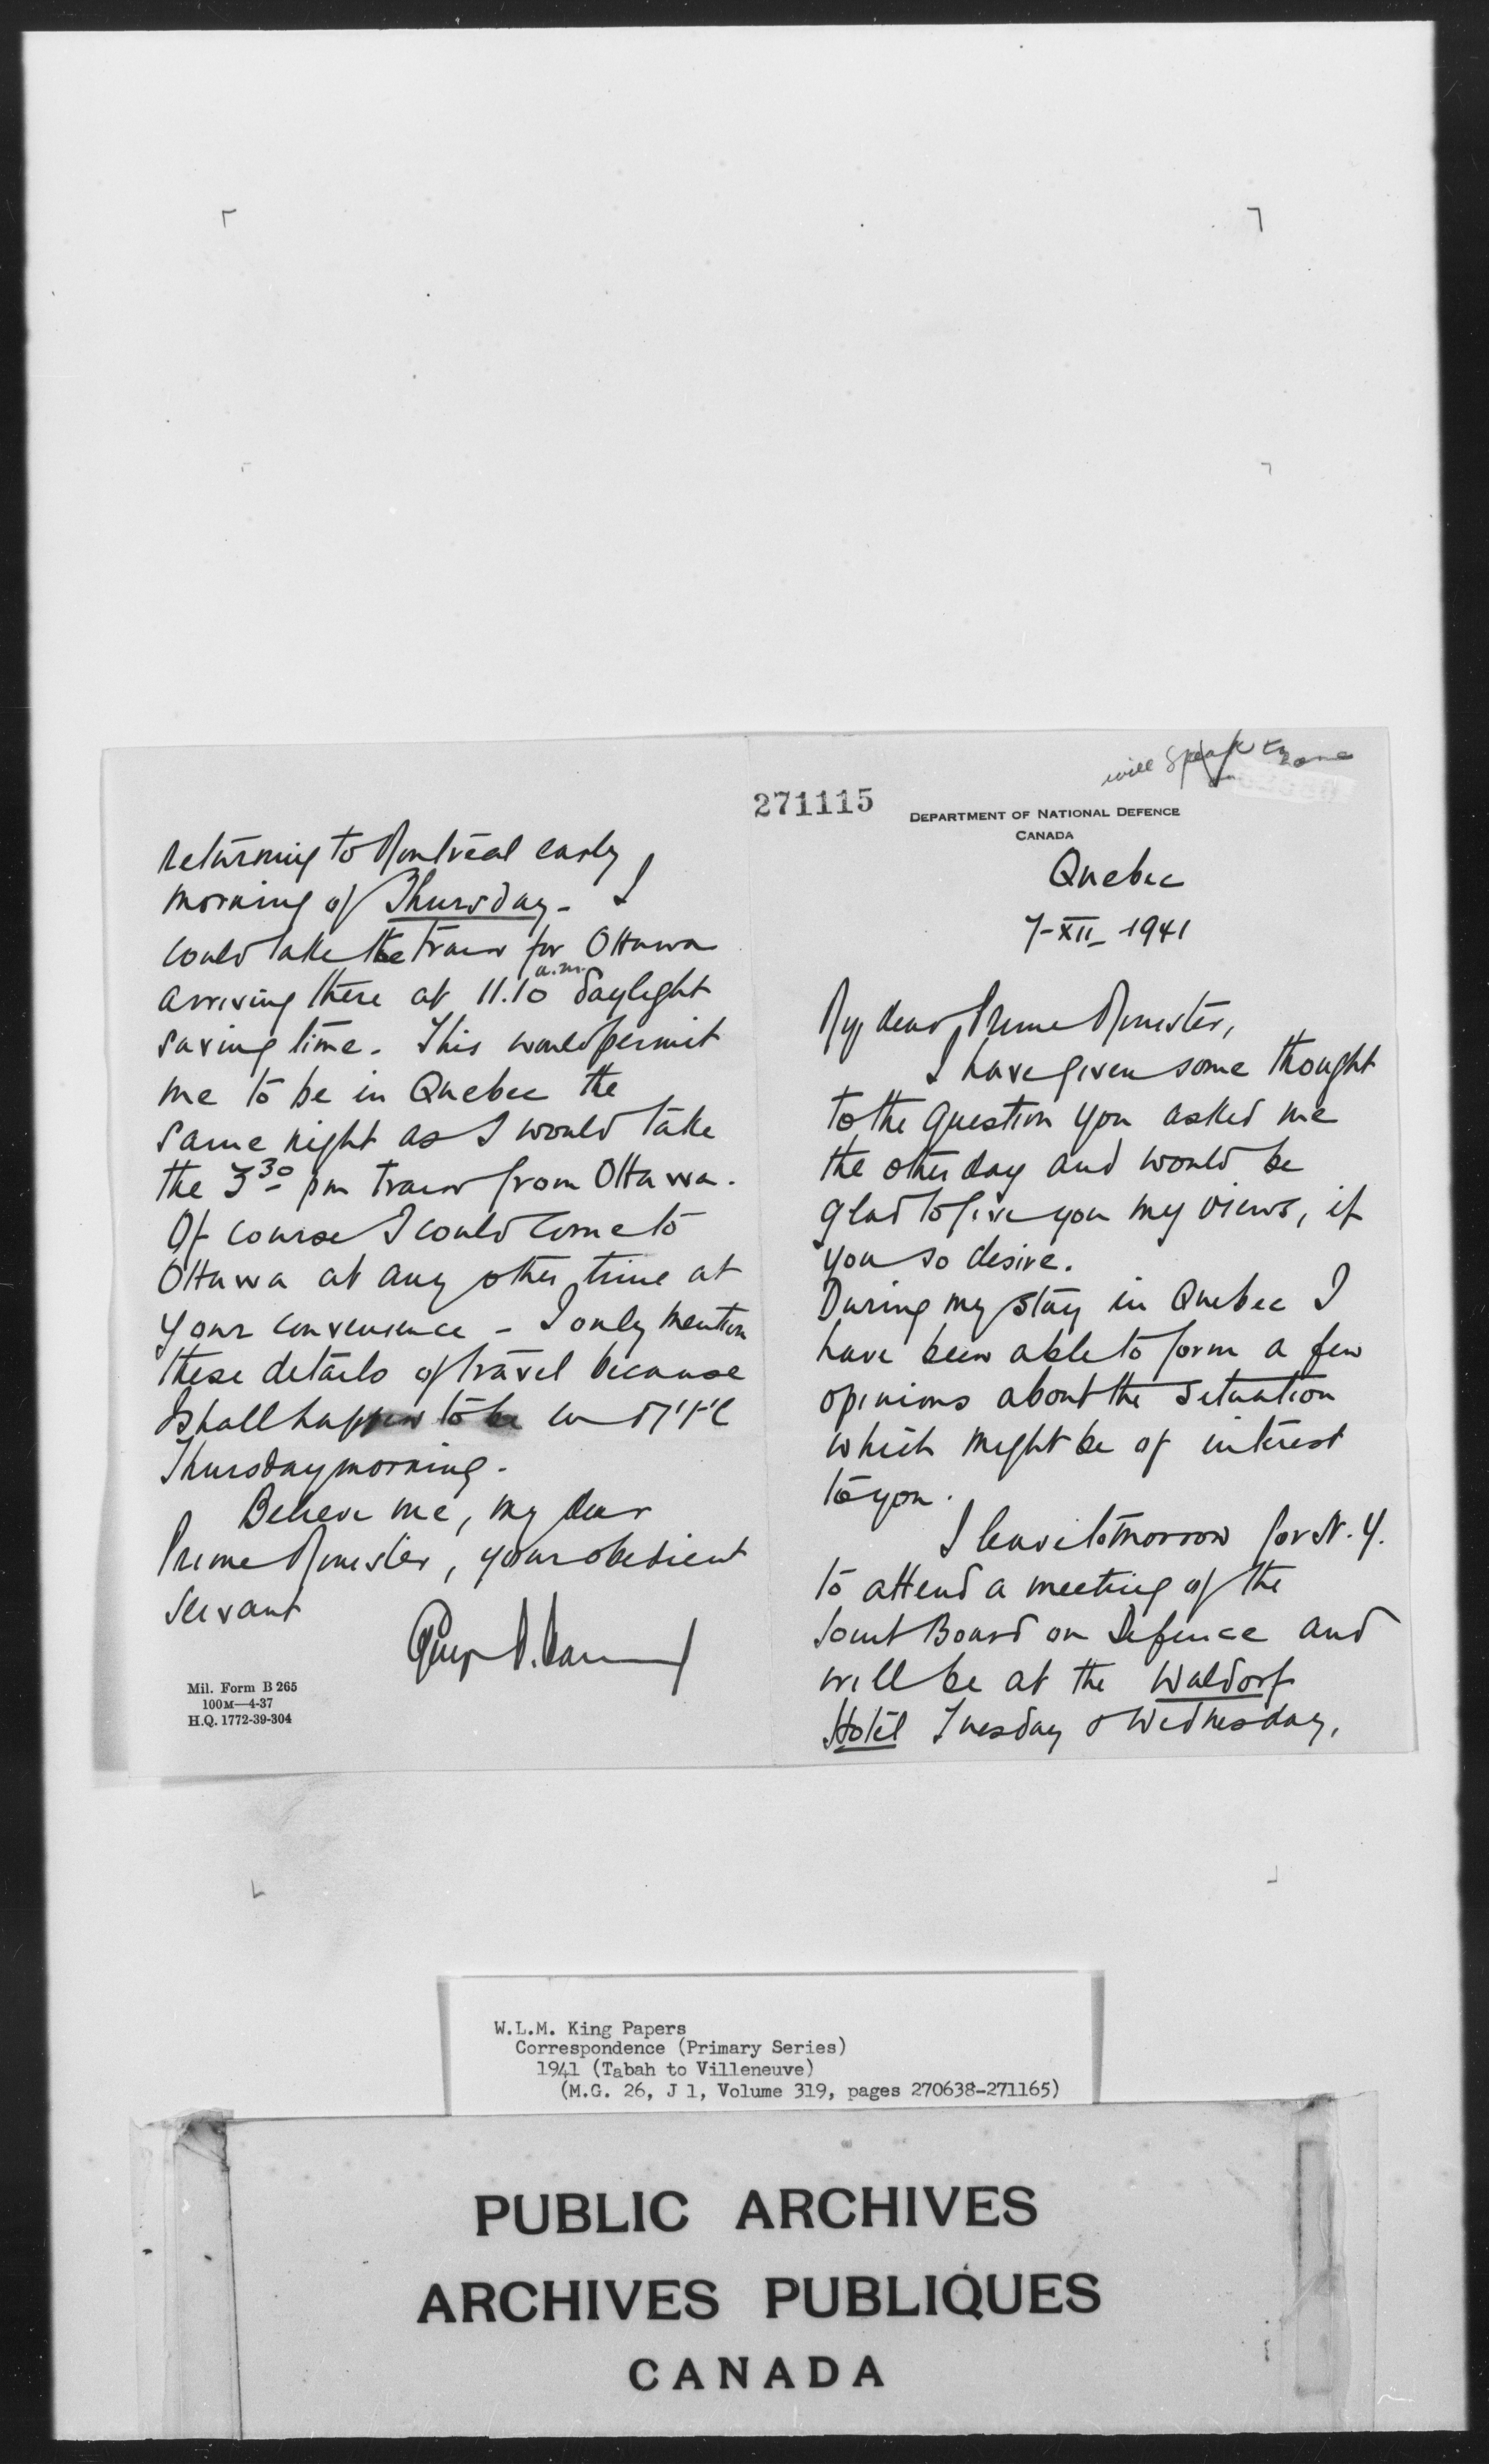 will speak to
271115
DEPARTMENT OF NATIONAL DEFENCE
CANADA
Quebec
7-XII- 1941
My dear Prime Minister,
I have given some thought
to the question you asked me
the other day and would be
glad to give you my views, if
you so desire.
During my stay in Quebec I
have been able to form a few
opinions about the situation
which might be of interest
to you.
I leave tomorrow for N.Y.
to attend a meeting of the
Joint Board on Defence and
will be at the Waldorf
Hotel Tuesday & Wednesday,
returning to Montreal early
morning of Thursday - I
could take the train for Ottawa
arriving there at 11.10 a.m. daylight
saving time. This would permit
me to be in Quebec the
same night as I would take
the 3 30 pm train from Ottawa.
Of course I could come to
Ottawa at any other time at
your convenience - I only mention
these details of travel because
I shall happen to be in M't'l
Thursday morning.
Believe me, my dear
Prime Minister, your obedient
servant
Mil. Form B 265
100M—4-37
H.Q. 1772-39-304
W.L.M. King Papers
Correspondence (Primary Series)
1941 (Tabah to Villeneuve)
(M.G. 26, J 1, Volume 319, pages 270638-271165)
PUBLIC ARCHIVES
ARCHIVES PUBLIQUES
CANADA